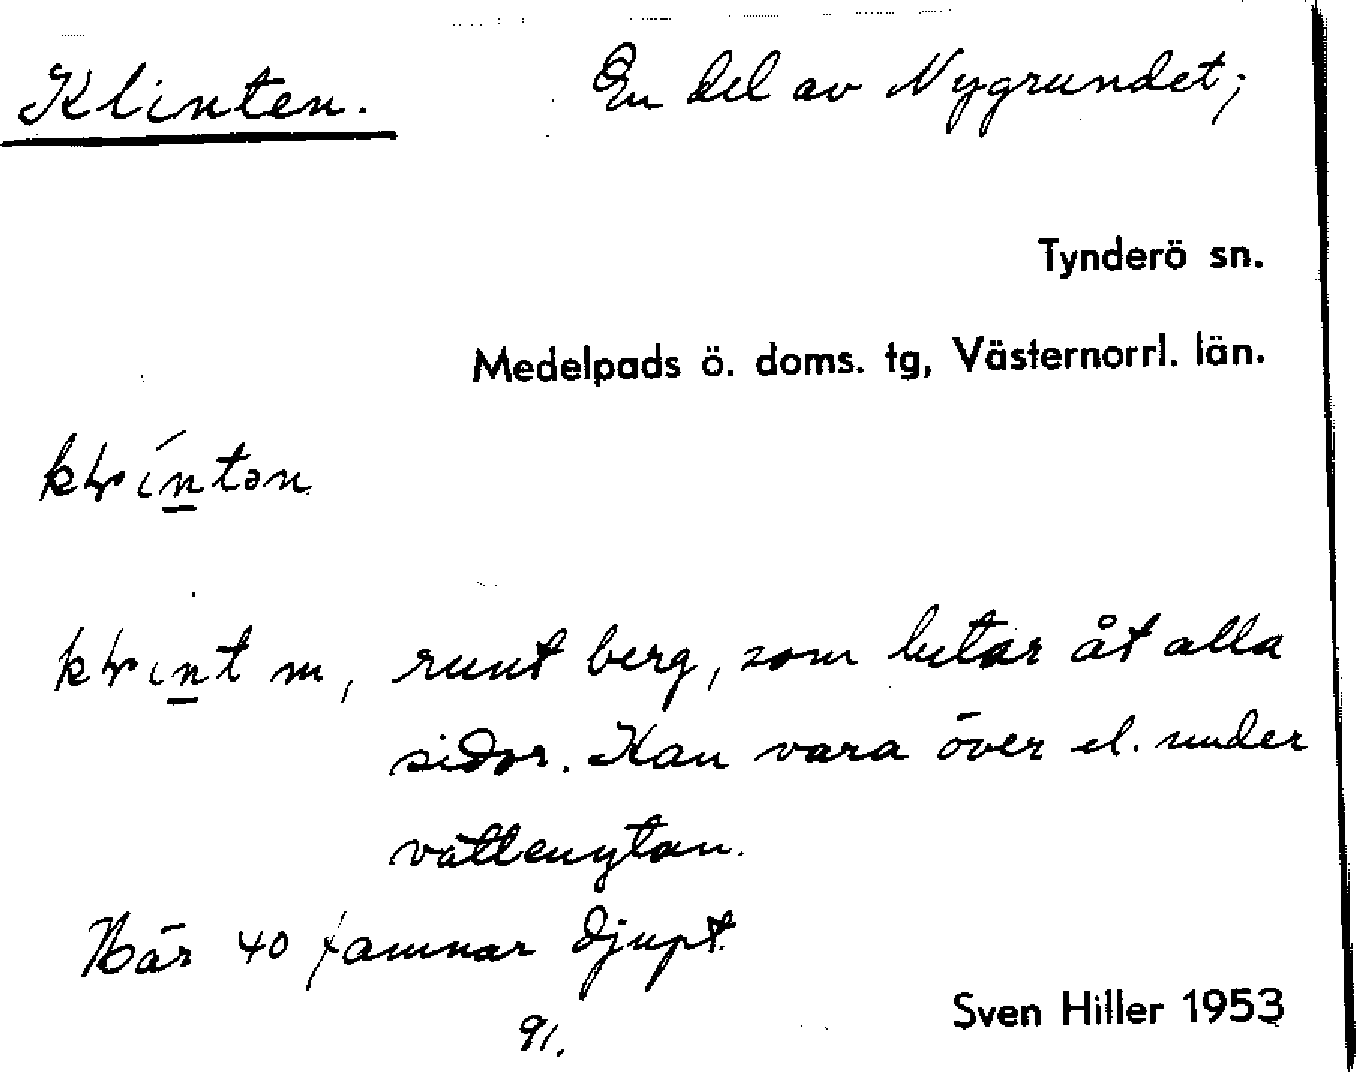 Klinten. En del av Nygrundet;
Tynderö sn.
Medelpads ö. doms. tg, Västernorrl. län.
m, runt berg, som lutar åt alla
sidor. Kan vara över el. under
vattenytan.
Här 40 famnar djupt
91.
Sven Hiller 1953